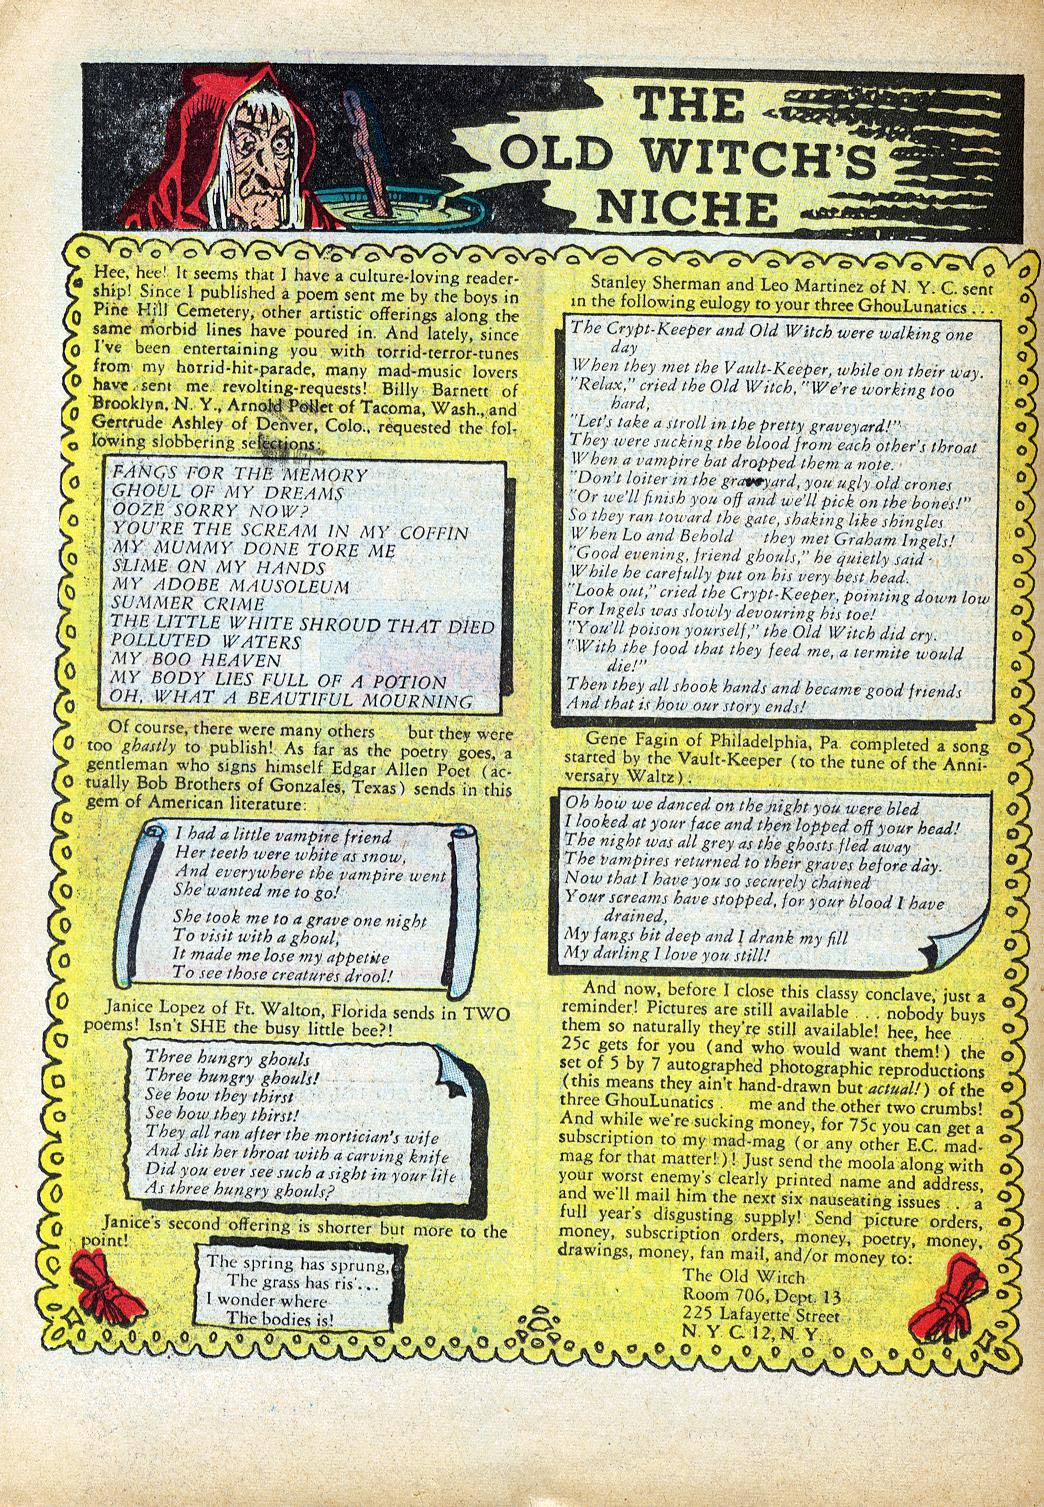 THE
OLD WITCH'S
NICHE
Hee, hee! It seems that I have a culture-loving reader-
ship! Since I published a poem sent me by the boys in
Pine Hill Cemetery, other artistic offerings along the
same morbid lines have poured in. And lately, since
I've been entertaining you with torrid-terror-tunes
from my horrid-hit-parade, many mad-music lovers
have sent me revolting-requests! Billy Barnett of
Brooklyn, N. Y., Arnold Pollet of Tacoma, Wash., and
Gertrude Ashley of Denver, Colo., requested the fol-
lowing slobbering selections:
FANGS FOR THE MEMORY
GHOUL OF MY DREAMS
OOZE SORRY NOW?
YOU'RE THE SCREAM IN MY COFFIN
MY MUMMY DONE TORE ME
SLIME ON MY HANDS
MY ADOBE MAUSOLEUM
SUMMER CRIME
THE LITTLE WHITE SHROUD THAT DIED
POLLUTED WATERS
MY BOO HEAVEN
MY BODY LIES FULL OF A POTION
OH, WHAT A BEAUTIFUL MOURNING
Of course, there were many others but they were
too ghastly to publish! As far as the poetry goes, a
gentleman who signs himself Edgar Allen Poet (ac-
tually Bob Brothers of Gonzales, Texas) sends in this
gem of American literature:
I had a little vampire friend
Her teeth were white as snow,
And everywhere the vampire went
She wanted me to go!
She took me to a grave one night
To visit with a ghoul,
It made me lose my appetite
To see those creatures drool!
Janice Lopez of Ft. Walton, Florida sends in TWO
poems! Isn't SHE the busy little bee?!
Three hungry ghouls
Three hungry ghouls!
See how they thirst
See how they thirst!
They all ran after the mortician's wife
And slit her throat with a carving knife
Did you ever see such a sight in your life
As three hungry ghouls?
Janice's second offering is shorter but more to the
point!
The spring has sprung,
The grass has ris'...
I wonder where
The bodies is!
Stanley Sherman and Leo Martinez of N. Y. C. sent
in the following eulogy to your three GhouLunatics . . .
The Crypt-Keeper and Old Witch were walking one
day
When they met the Vault-Keeper, while on their way.
"Relax," cried the Old Witch, "We're working too
hard,
"Let's take a stroll in the pretty graveyard!"
They were sucking the blood from each other's throat
When a vampire bat dropped them a note.
"Don't loiter in the graveyard, you ugly old crones
"Or we'll finish you off and we'll pick on the bones!"
So they ran toward the gate, shaking like shingles
When Lo and Behold they met Graham Ingels!
"Good evening, friend ghouls," he quietly said
While he carefully put on his very best head.
"Look out," cried the Crypt-Keeper, pointing down low
For Ingels was slowly devouring his toe!
"You'll poison yourself," the Old Witch did cry.
"With the food that they feed me, a termite would
die!"
Then they all shook hands and became good friends
And that is how our story ends!
Gene Fagin of Philadelphia, Pa. completed a song
started by the Vault-Keeper (to the tune of the Anni-
versary Waltz).
Oh how we danced on the night you were bled
I looked at your face and then lopped off your head!
The night was all grey as the ghosts fled away
The vampires returned to their graves before day.
Now that I have you so securely chained
Your screams have stopped, for your blood I have
drained,
My fangs bit deep and I drank my fill
My darling I love you still!
And now, before I close this classy conclave, just a
reminder! Pictures are still available . . . nobody buys
them so naturally they're still available! hee, hee
25c gets for you (and who would want them!) the
set of 5 by 7 autographed photographic reproductions
(this means they ain't hand-drawn but actual!) of the
three GhouLunatics me and the other two crumbs!
And while we're sucking money, for 75c you can get a
subscription to my mad-mag (or any other E.C. mad-
mag for that matter!)! Just send the moola along with
your worst enemy's clearly printed name and address,
and we'll mail him the next six nauseating issues . . a
full year's disgusting supply! Send picture orders,
money, subscription orders, money, poetry, money,
drawings, money, fan mail, and/or money to:
The Old Witch
Room 706, Dept. 13
225 Lafayette Street
N. Y. C. 12, N. Y.